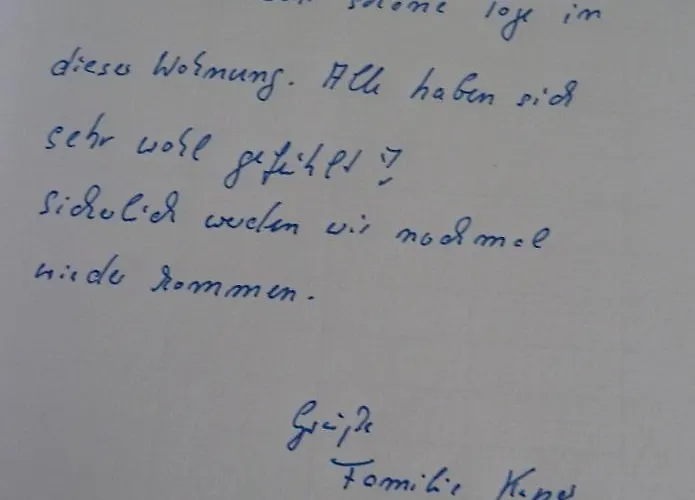 schöne Tage in
dieser Wohnung. Alle haben sich
sehr wohl gefühlt!
Sicherlich werden wir nochmal
wieder kommen.
Grüße
Familie